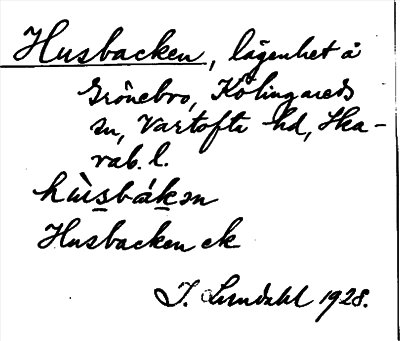 Husbacken, lägenhet å
Grönebro, Kölingareds
sn, Vartofta hd, Ska-
rab. l.
hùsbák̠ən
Husbacken ek
J. Lundahl 1928.